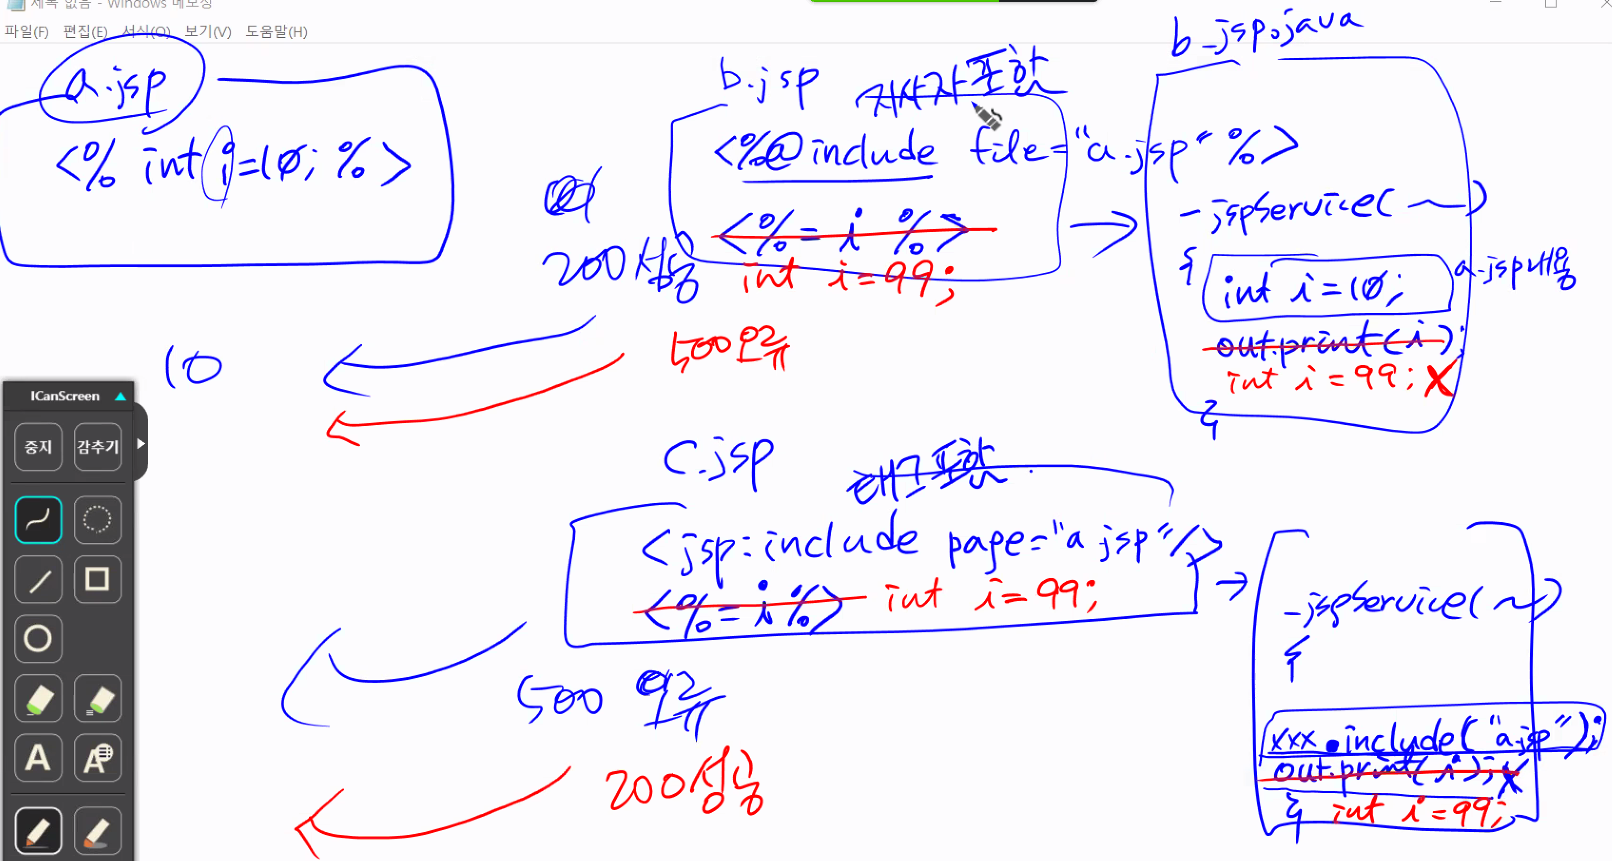 제목 없음 - Windows 메모장
파일(F) 편집(E) 서식(O) 보기(V) 도움말(H)
a.jsp
<% int i=10; %>
b.jsp
지시자 포함
<%@include file="a.jsp" %>
<%= i %>
int i=99;
200 성공
500 오류
10
b_jsp.java
_jspService( ~ )
{
int i=10;
a.jsp내용
out.print(i);
int i=99; X
}
ICanScreen
중지
감추기
A
A
c.jsp
태그 포함
<jsp:include page="a.jsp"/>
<%= i %> int i=99;
500 오류
200 성공
_jspService( ~ )
{
xxx.include("a.jsp");
out.print(i); X
} int i=99;